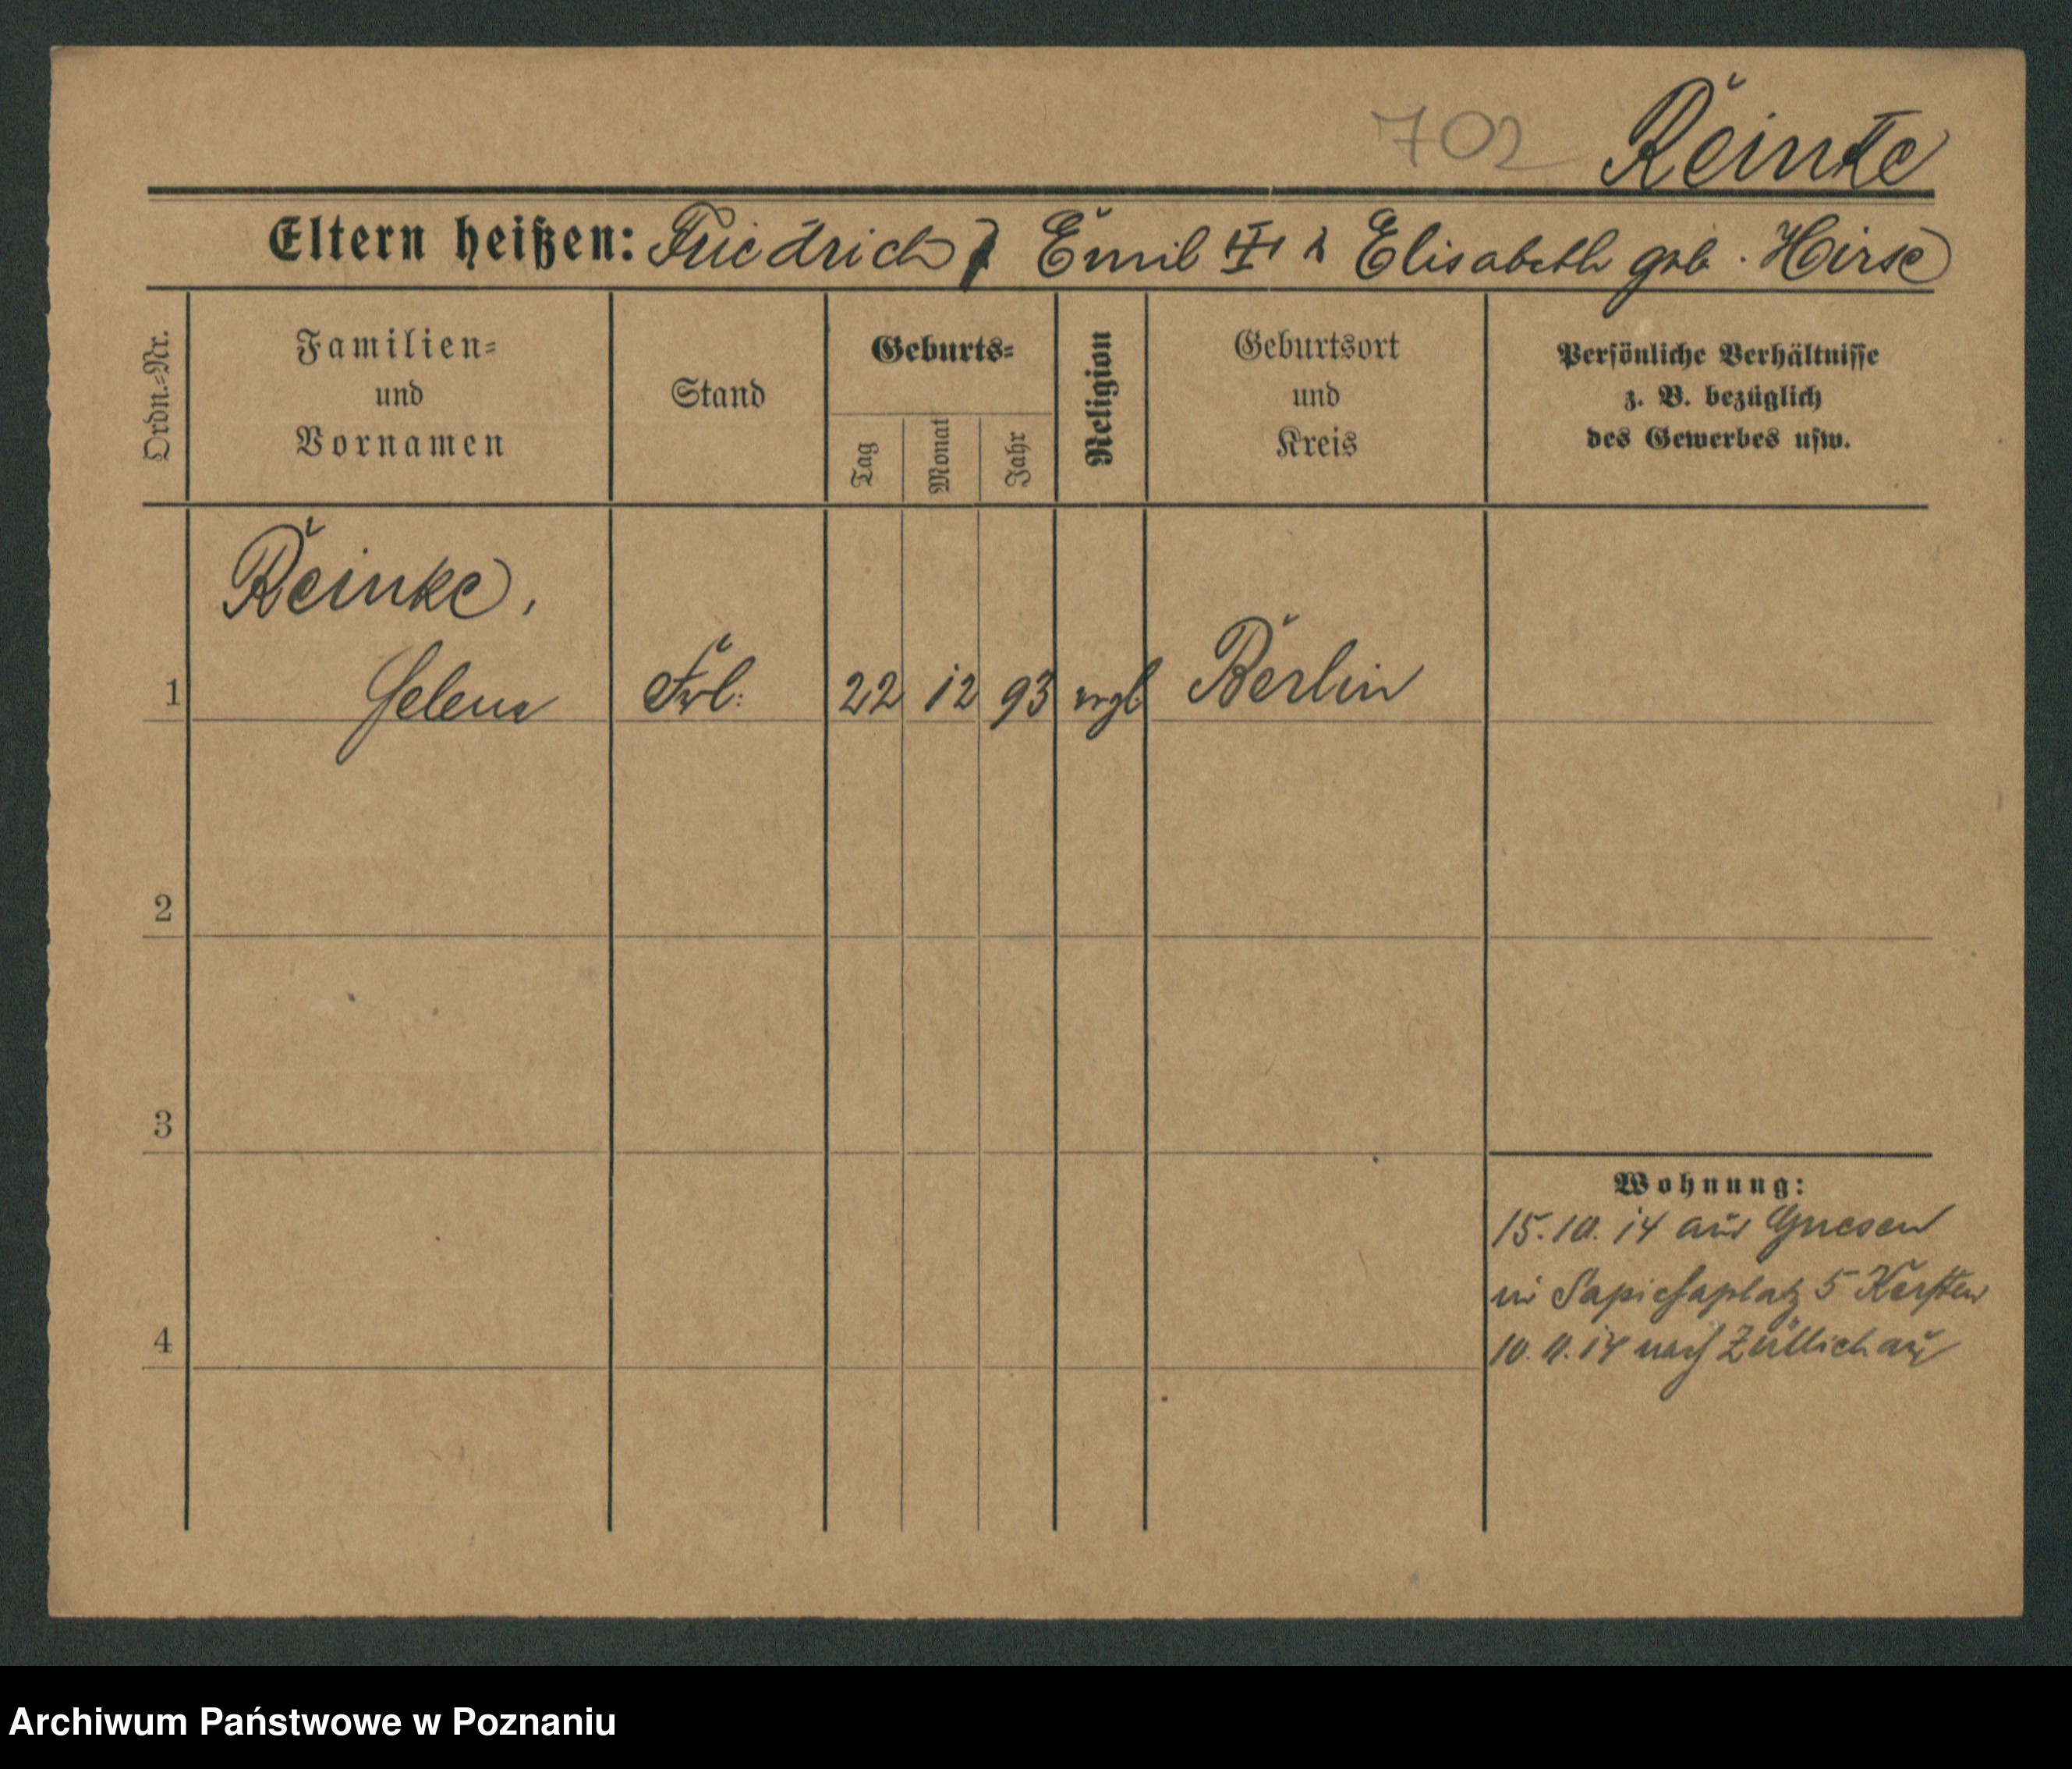 702 Reinke
Eltern heißen: Friedrich Emil u Elisabeth geb. Hirse
Ordn.-Nr.
Familien-
und
Vornamen
Stand
Geburts-
Tag
Monat
Jahr
Religion
Geburtsort
und
Kreis
Persönliche Verhältnisse
z. B. bezüglich
des Gewerbes usw.
Reinke,
1 Helene Frl. 22 12 93 evgl Berlin
2
3
4
Wohnung:
15.10.14 aus Gnesen
in Sapiehaplatz 5 Kersten
10.11.14 nach Züllichau
Archiwum Państwowe w Poznaniu